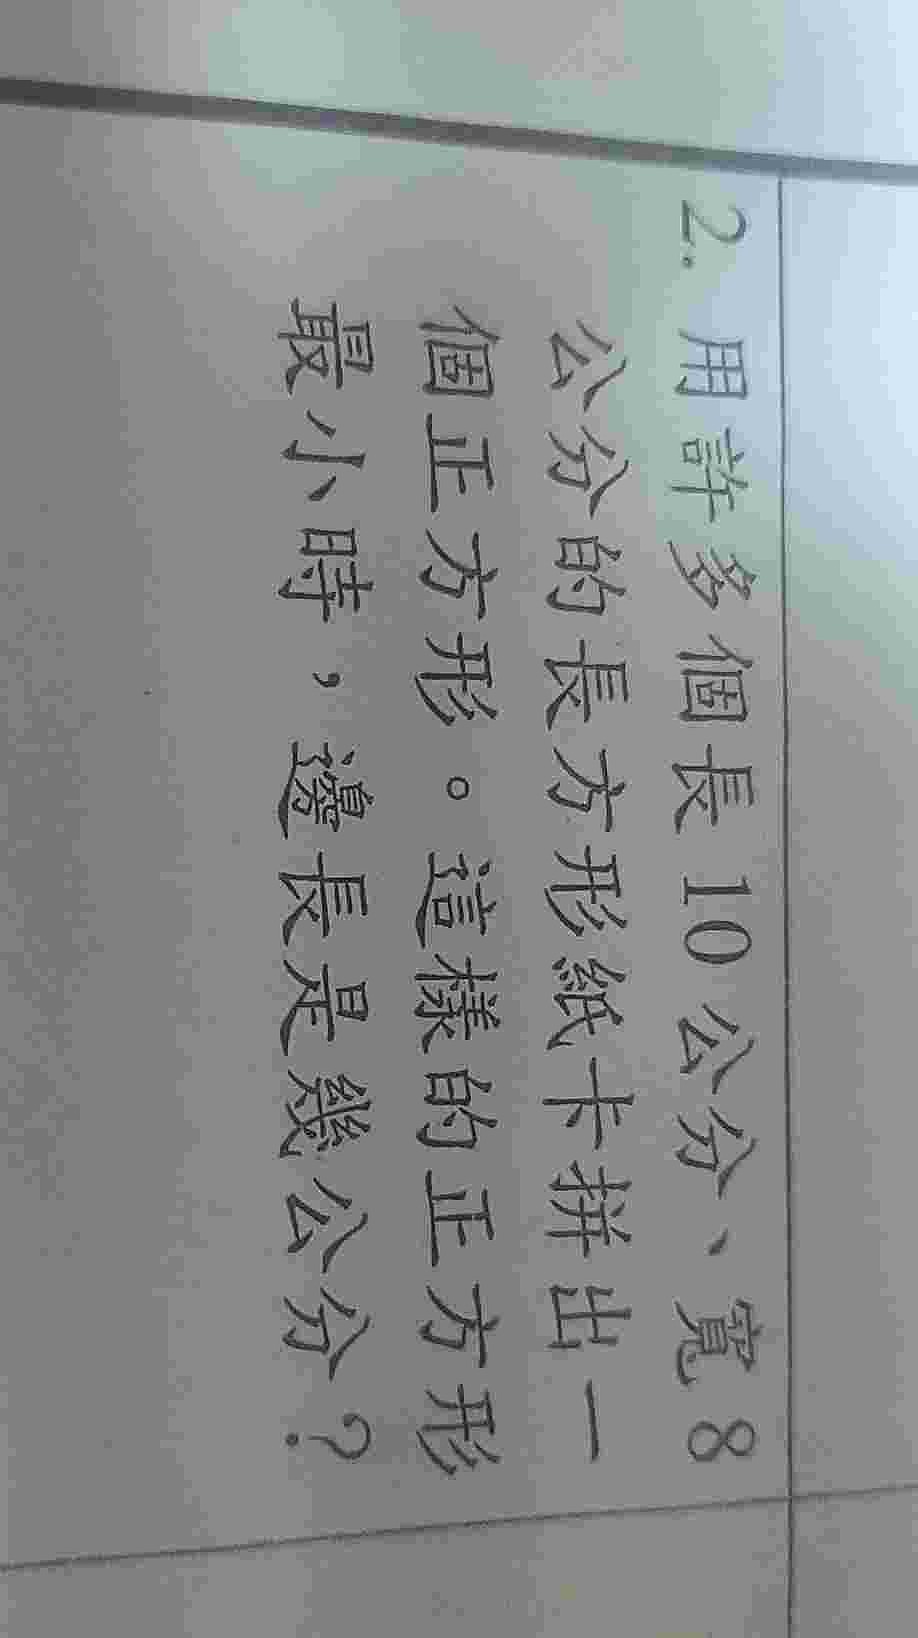 2. 用許多個長 10 公分、寬 8
公分的長方形紙卡拼出一
個正方形。這樣的正方形
最小時，邊長是幾公分？